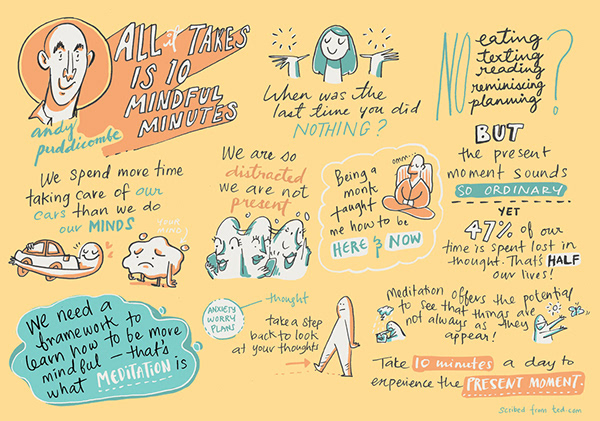 ALL it TAKES
IS 10
MINDFUL
MINUTES
andy
puddicombe
When was the
last time you did
NOTHING?
NO eating
texting
reading
reminiscing
planning?
BUT
the present
moment sounds
SO ORDINARY
YET
47% of our
time is spent lost in
thought. That's HALF
our lives!
We spend more time
taking care of our
cars than we do
our MINDS
YOUR MIND
We are so
distracted
we are not
present
omm
Being a
monk
taught
me how to be
HERE & NOW
We need a
framework to
learn how to be more
mindful – that's
what MEDITATION is
ANXIETY
WORRY
PLANS
thought
take a step
back to look
at your thoughts
Meditation offers the potential
to see that things are
not always as they
appear!
Take 10 minutes a day to
experience the PRESENT MOMENT.
Scribed from ted.com